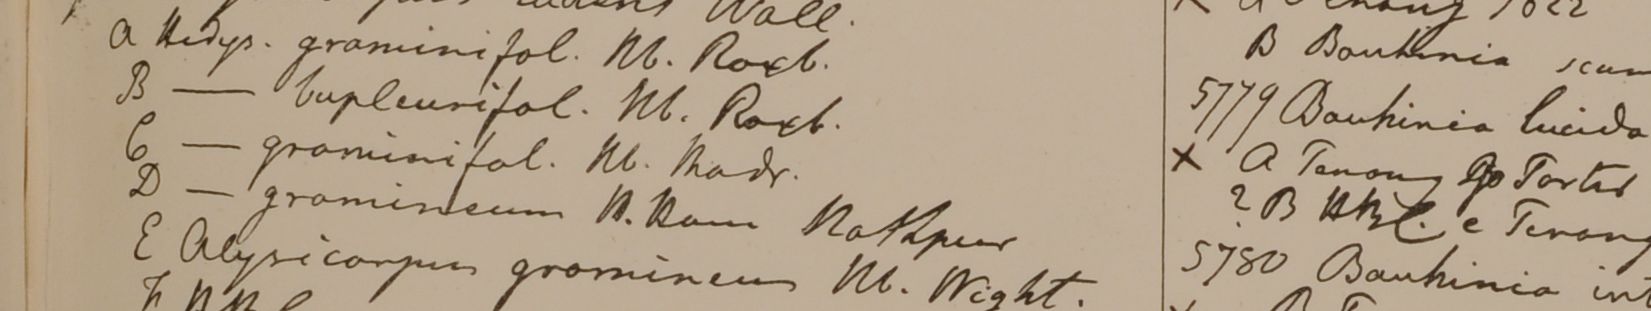 Wall.
A Hedys. graminifol. Hb. Roxb.
B — bupleurifol. Hb. Roxb.
C — graminifol. Hb. Madr.
D — gramineum H. Ham
E Alysicarpus gramineus Hb. Wight.
F HBC
1822
B Bauhinia
5779 Bauhinia lucida
x A Penang Porter
? B HBC. e Penang
5780 Bauhinia int